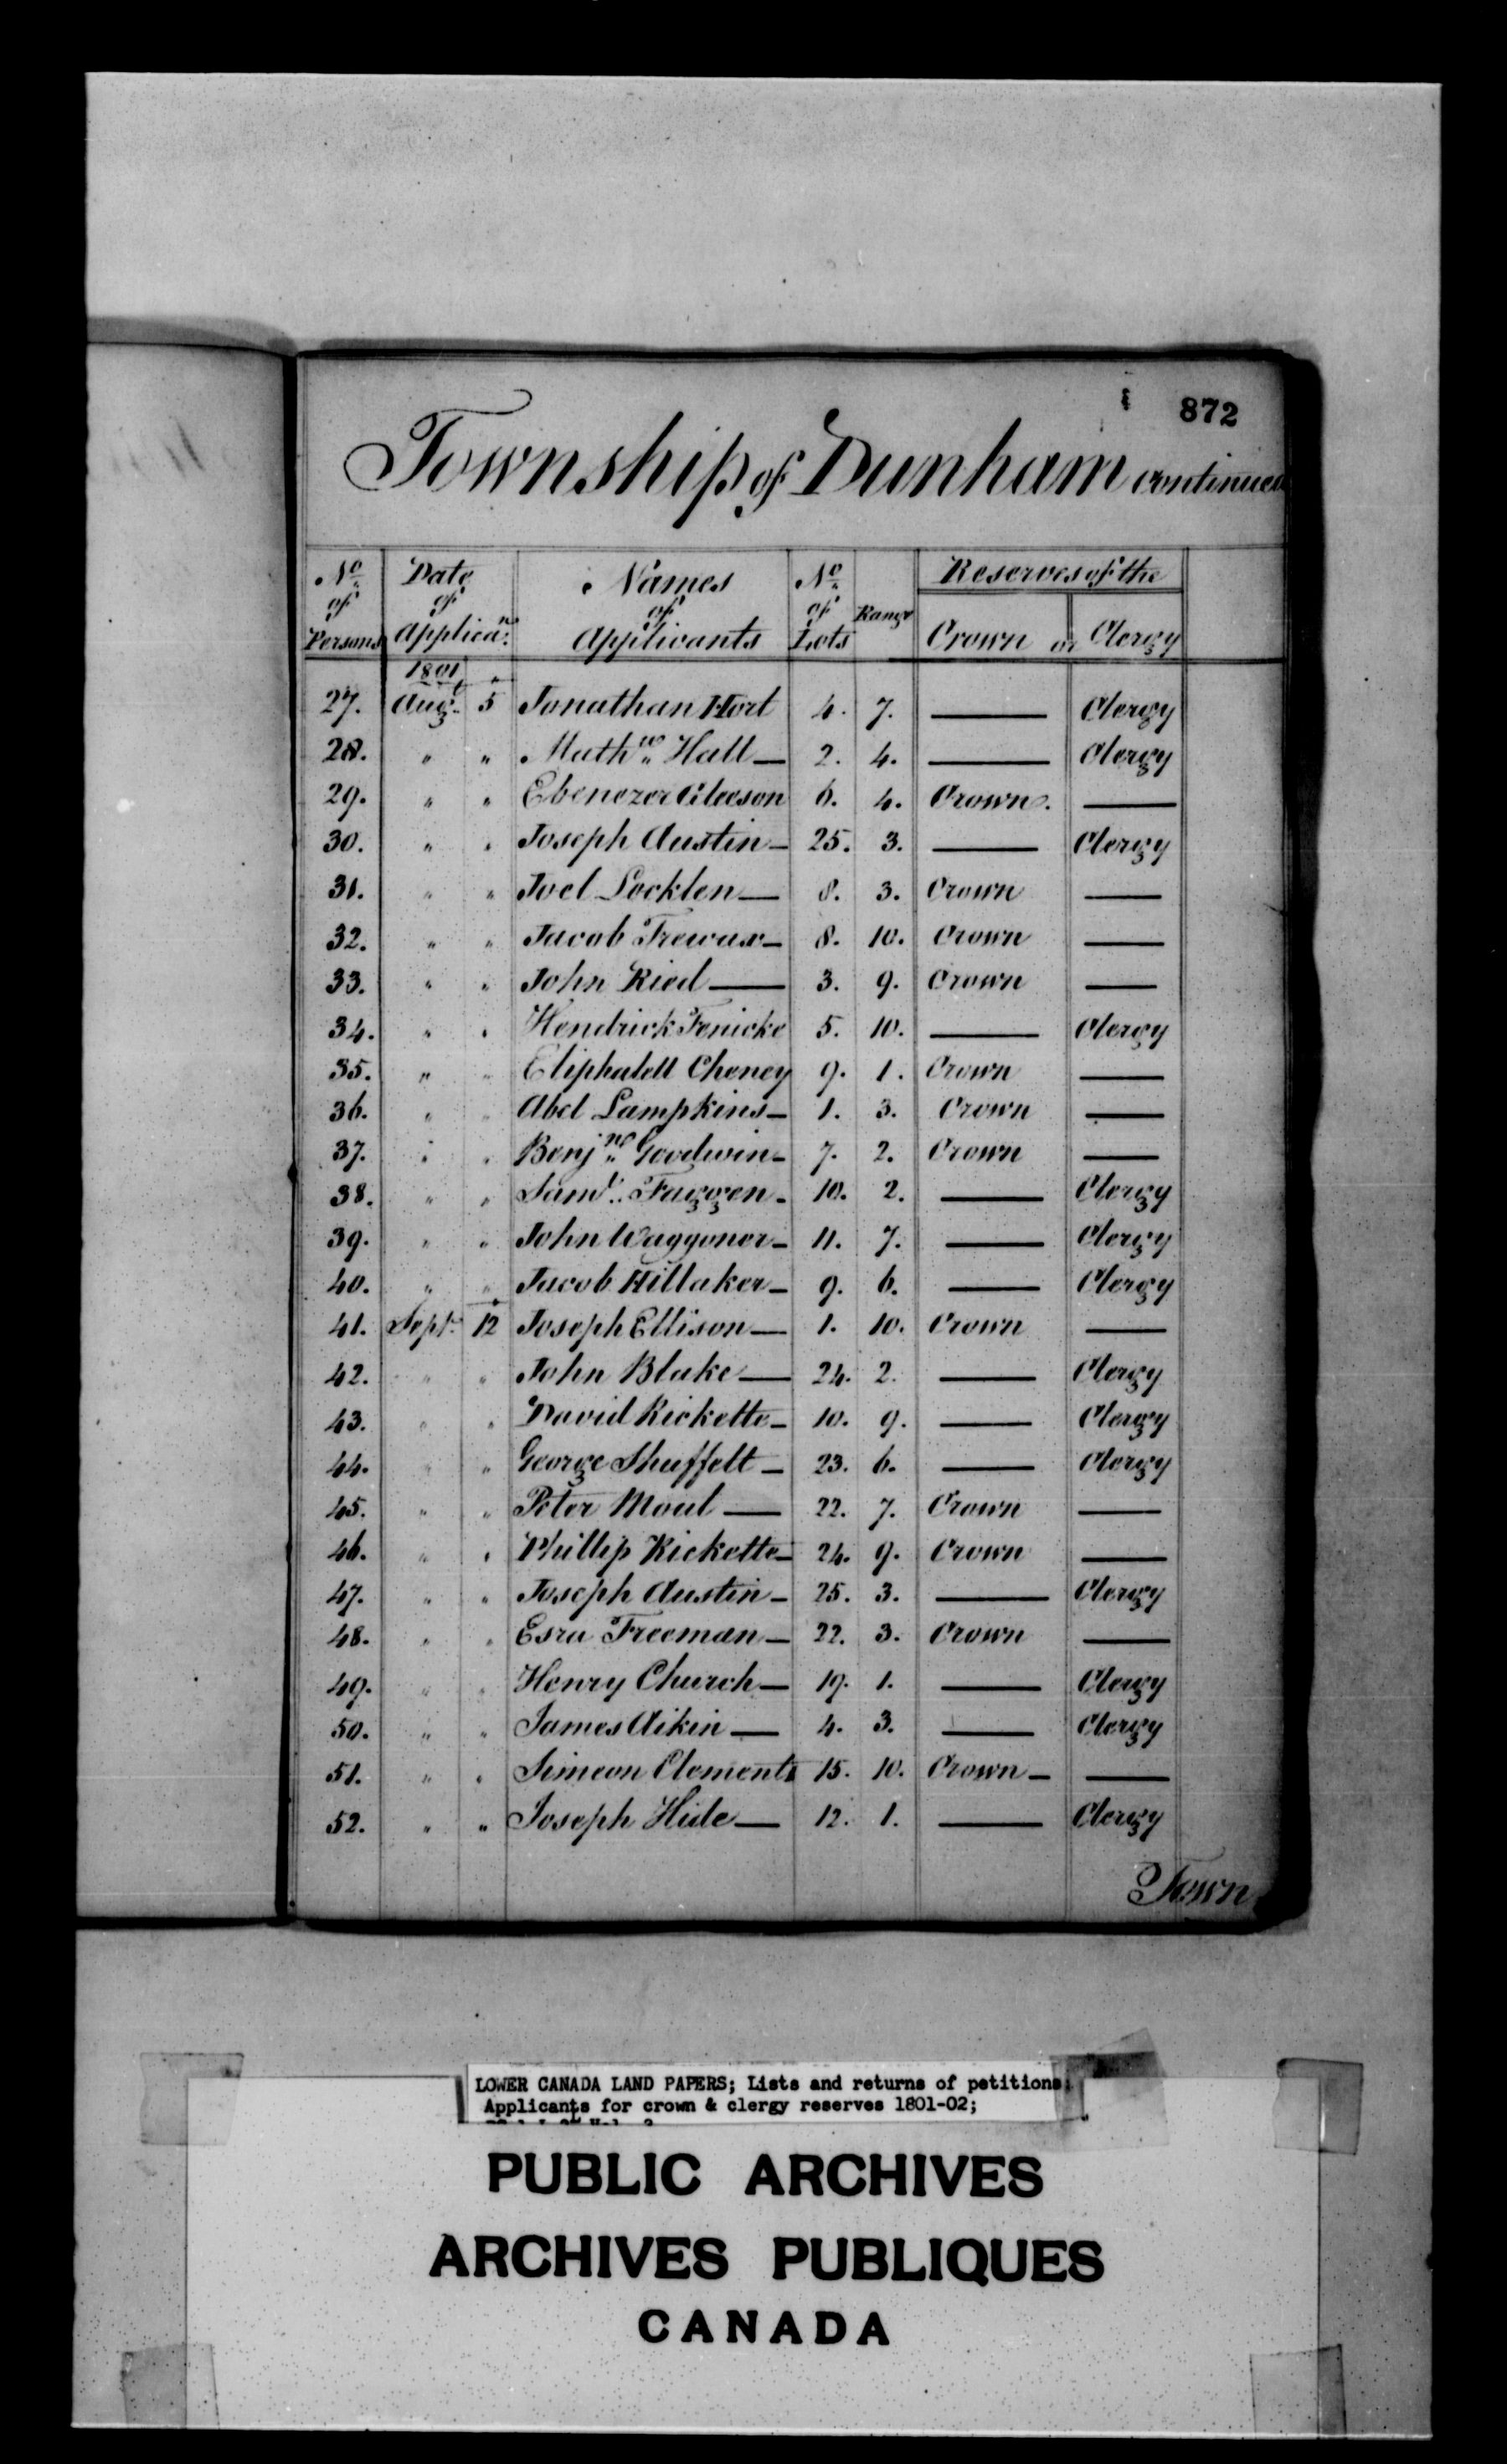 872
Township of Dunham continued
No of Persons | Date of Applican. | Names of Applicants | No of Lots | Range | Reserves of the Crown or Clergy
1801
27. Augt. 5 Jonathan Hort 4. 7. — Clergy
28. " " Mathw. Hall — 2. 4. — Clergy
29. " " Ebenezer Gleeson 6. 4. Crown. —
30. " " Joseph Austin — 25. 3. — Clergy
31. " " Joel Locklen — 8. 3. Crown —
32. " " Jacob Trewax — 8. 10. Crown —
33. " " John Ried — 3. 9. Crown —
34. " " Hendrick Fenicke 5. 10. — Clergy
35. " " Eliphalett Cheney 9. 1. Crown —
36. " " Abel Lampkins — 1. 3. Crown —
37. " " Benjn. Goodwin — 7. 2. Crown —
38. " " Saml. Faggen - 10. 2. — Clergy
39. " " John Waggoner — 11. 7. — Clergy
40. " " Jacob Hillaker — 9. 6. — Clergy
41. Sept. 12 Joseph Ellison — 1. 10. Crown —
42. " " John Blake — 24. 2. — Clergy
43. " " David Ricketts — 10. 9. — Clergy
44. " " George Shuffelt — 23. 6. — Clergy
45. " " Peter Moul — 22. 7. Crown —
46. " " Phillip Ricketts — 24. 9. Crown —
47. " " Joseph Austin — 25. 3. — Clergy
48. " " Esra Freeman — 22. 3. Crown —
49. " " Henry Church — 19. 1. — Clergy
50. " " James Aikin — 4. 3. — Clergy
51. " " Simeon Clements 15. 10. Crown — —
52. " " Joseph Hide — 12. 1. — Clergy
Town
LOWER CANADA LAND PAPERS; Lists and returns of petitions;
Applicants for crown & clergy reserves 1801-02;
PUBLIC ARCHIVES
ARCHIVES PUBLIQUES
CANADA